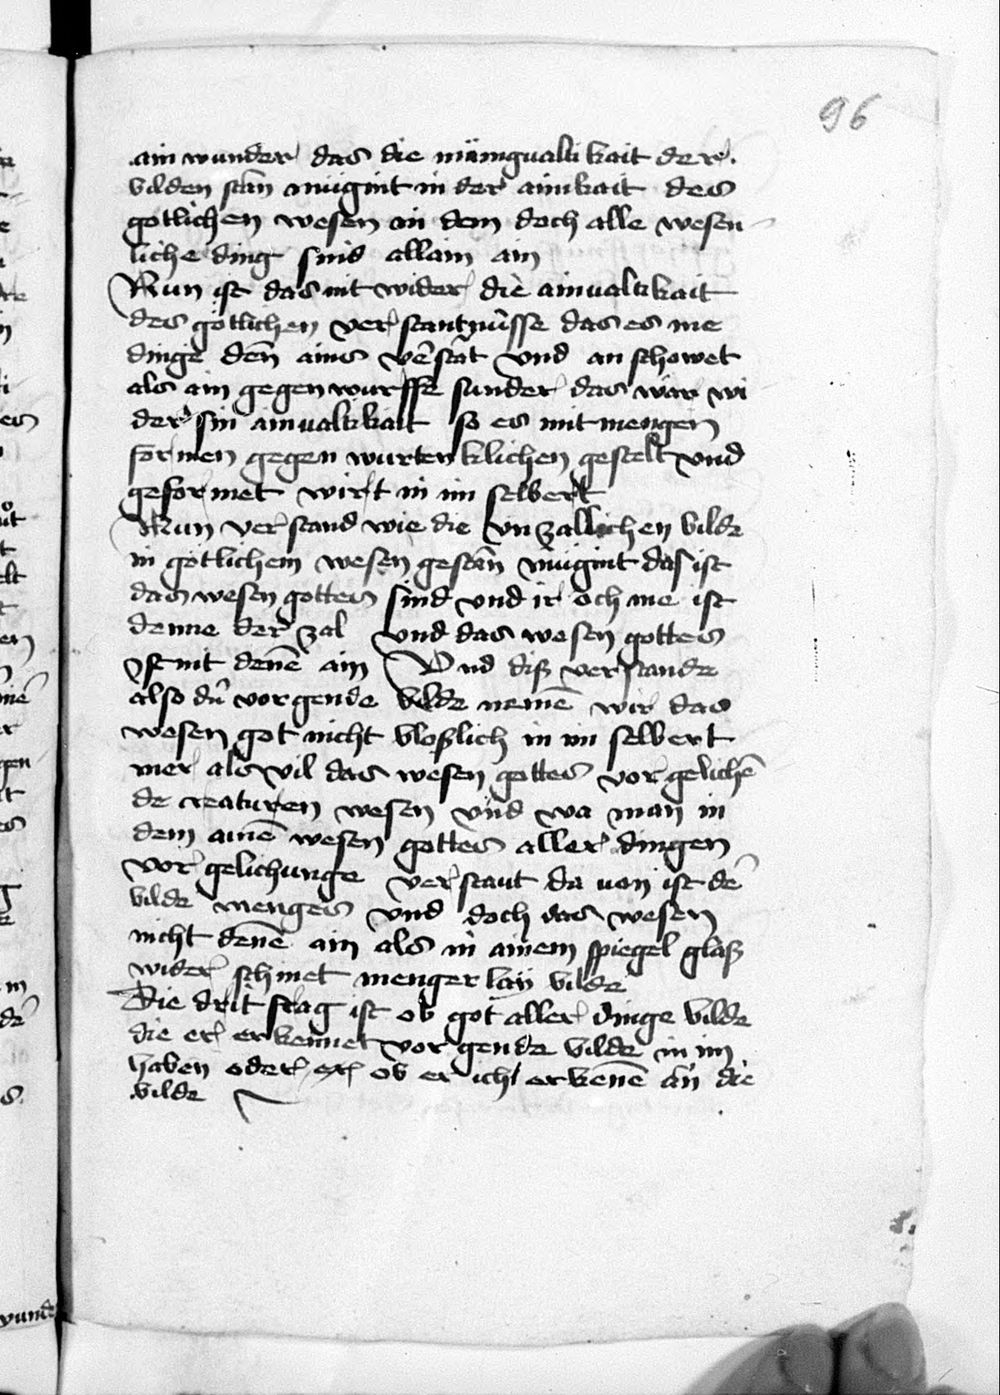 96
ain wunder das die mangualtikait der
bilden stan mügint in der ainikait des
gotlichen wesen in dem doch alle wesen
liche ding sind allain ain
Nun ist das nit wider die ainualtikait
des götlichen verstantnüsse das es me
dinge den ains v̄stat vnd an schowet
als ain gegen wurffe sunder das wär wi
der sin ainualtikait so es mit mengen
formen gegen wurtenklichen gestelt vnd
geformet wirt in im selbert
Nun verstand wie die vnzallichen bilde
in götlichem wesen gestān mügint das ist
das wesen gottes sind vnd ir och me ist
denne der zal vnd das wesen gottes
ist nit denē ain Vnd diß verstande
also dū vorgende bilde nemē wir das
wesen got nicht bloßlich in im selbert
mer als vil das wesen gottes vor gelichē
de creaturen wesen vnd wa man in
dem ainē wesen gottes aller dingen
vor gelichunge verstaut da uon ist dē
bilde menges vnd doch das wesen
nicht denē ain als in ainem spiegel glaß
wider schinet menger lay bilde
Die drit frag ist ob got aller dinge bilde
die er erkennet vor gende bilde in im
haben oder er ob er icht erkenē an die
bilde